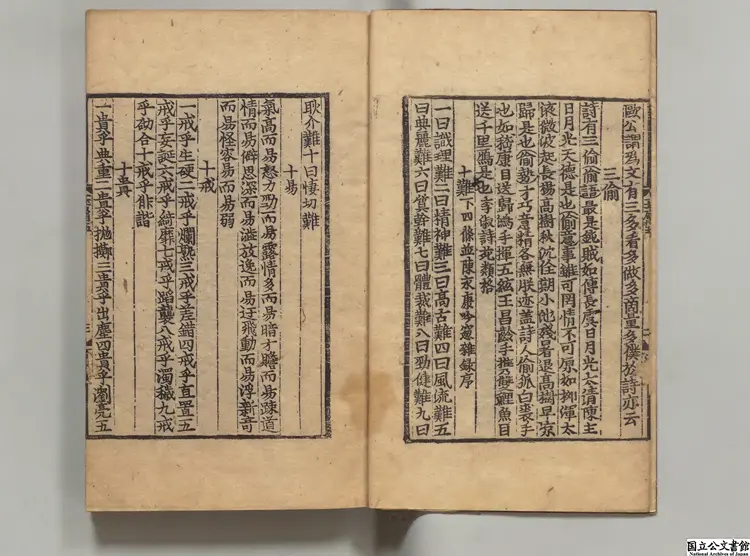 歐公謂爲文有三多看多做多商量多僕於詩亦云
三偷
詩有三偷偷語最是鈍賊如傅長虞日月光太清陳主
日月光天德是也偷意事雖可罔情不可原如柳渾太
液微波起長楊高樹秋沈佺期小池殘暑退高樹早凉
歸是也偷勢才巧意精各無朕迹蓋詩人偷狐白裘手
也如嵇康目送歸鴻手揮五絃王昌齡手携雙鯉魚目
送千里鴈是也李淑詩苑類格
十難下四條並陳永康吟窻雜錄序
一曰識理難二曰精神難三曰高古難四曰風流難五
曰典麗難六曰質幹難七曰體裁難八曰勁健難九曰
耿介難十曰悽切難
十易
氣高而易怒力勁而易露情多而易暗才贍而易疎道
情而易僻思深而易澁放逸而易迂飛動而易浮新奇
而易怪容易而易弱
十戒
一戒乎生硬二戒乎爛熟三戒乎差錯四戒乎直置五
戒乎妄誕六戒乎綺靡七戒乎蹈襲八戒乎濁穢九戒
乎砌合十戒乎俳諧
十貴
一貴乎典重二貴乎拋擲三貴乎出塵四貴乎瀏亮五
国立公文書館
National Archives of Japan